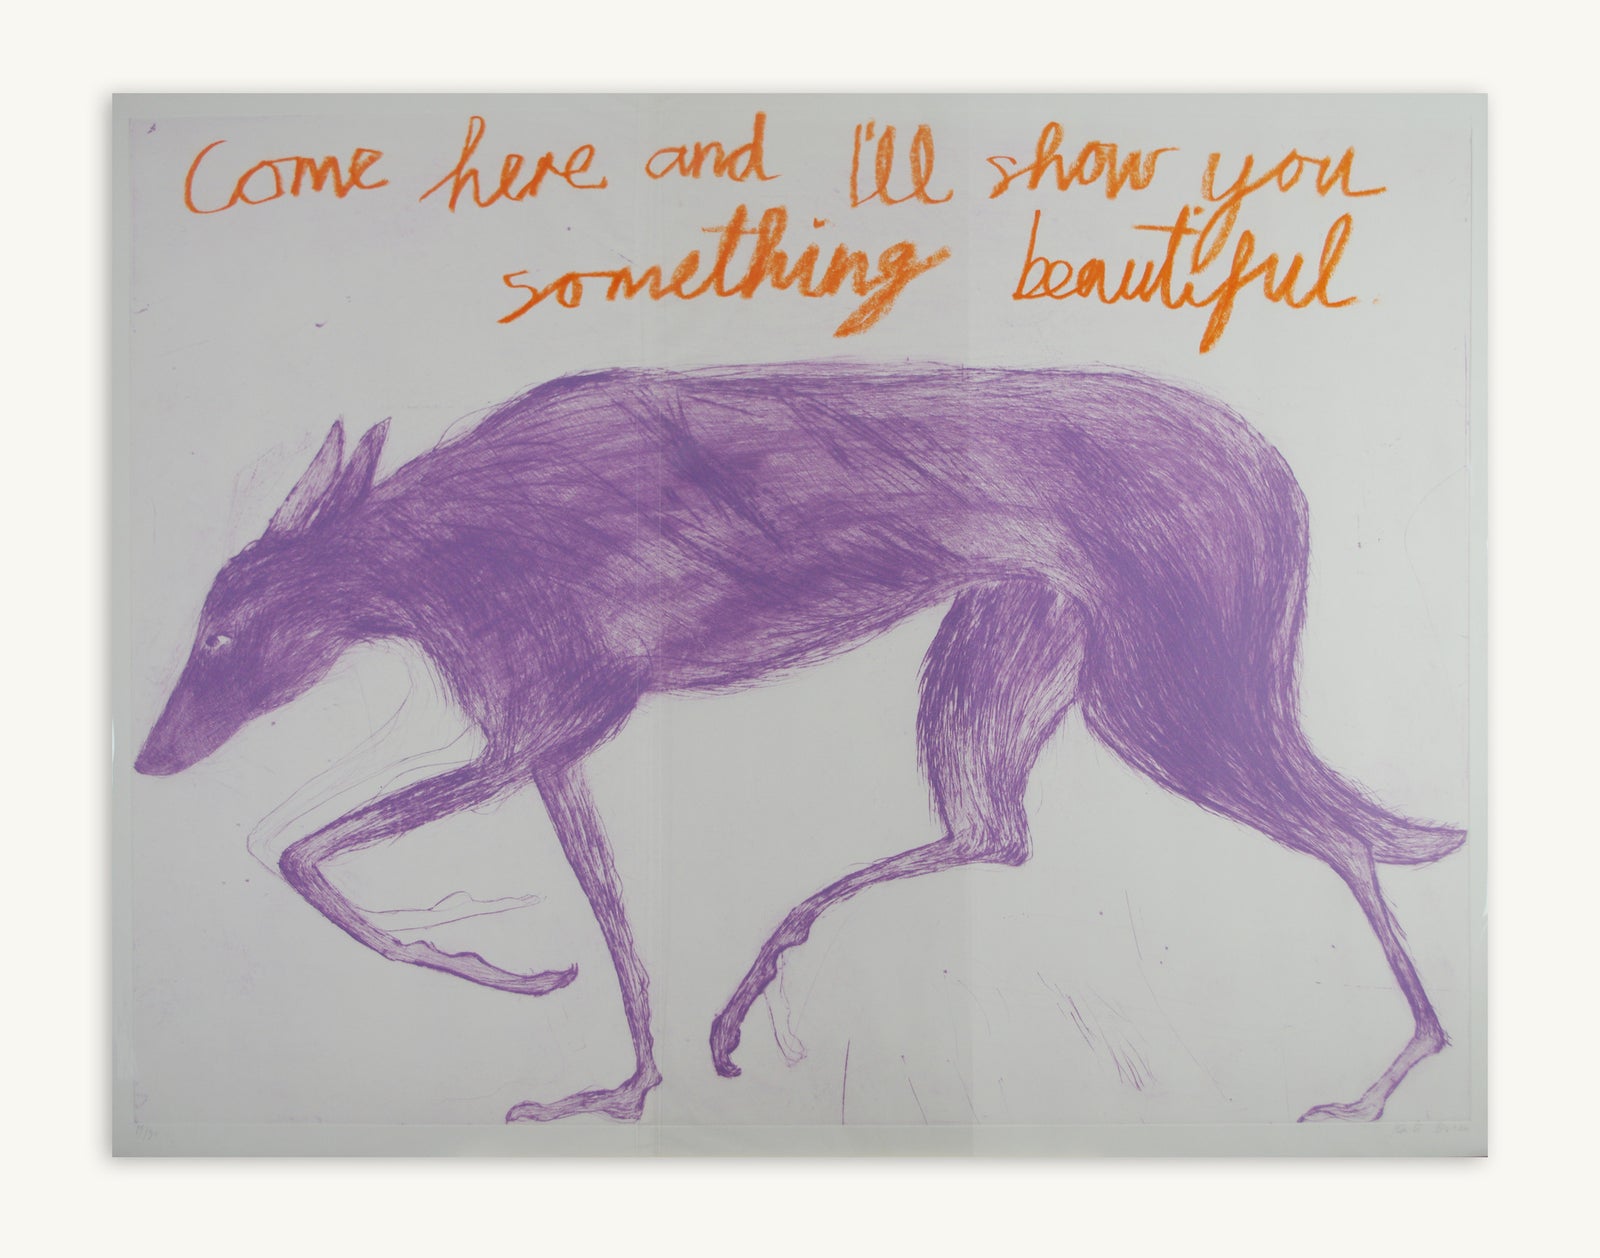 Come here and I'll show you
something beautiful.